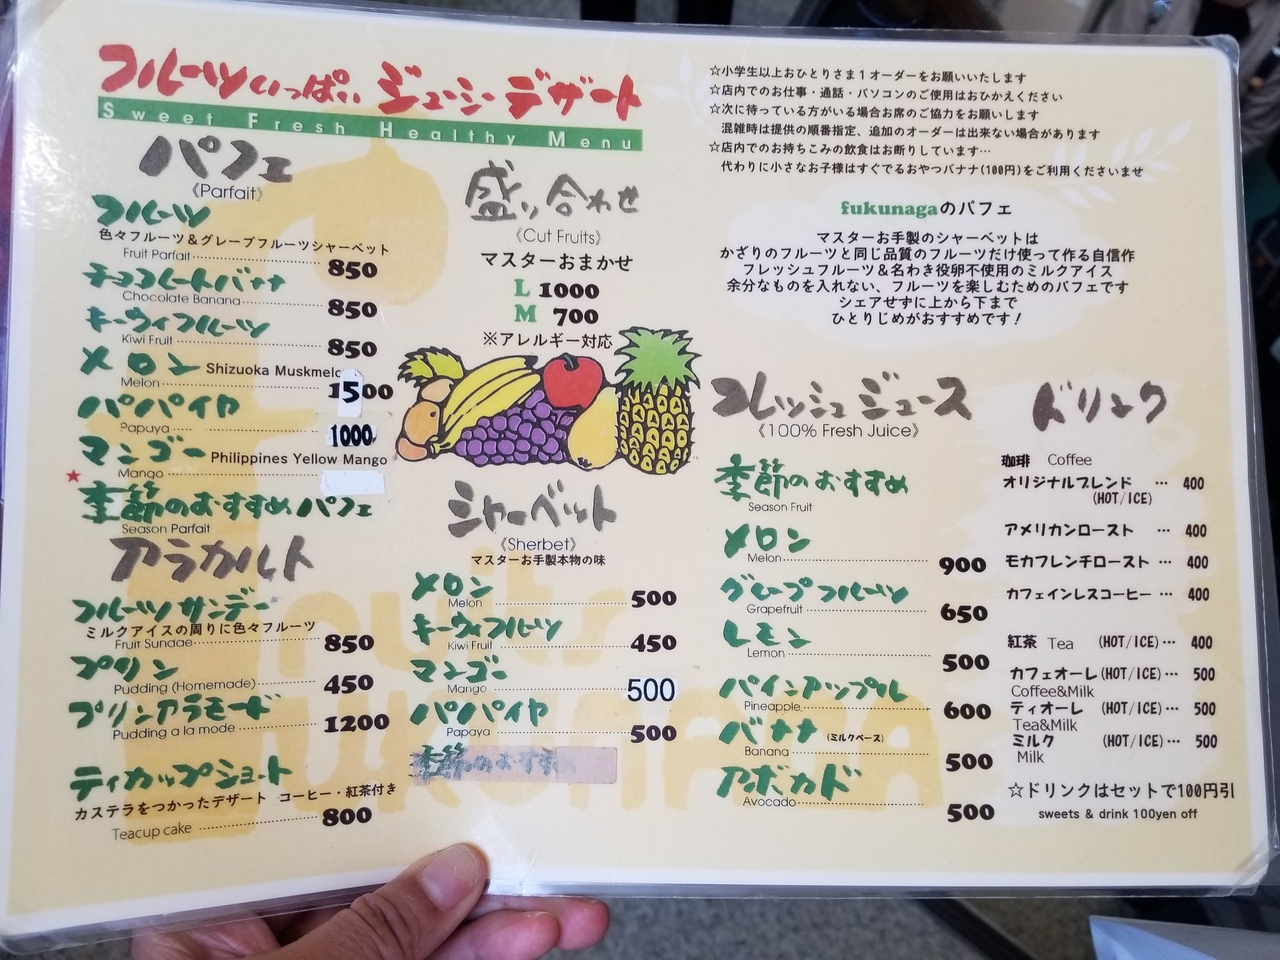 フルーツいっぱい ジューシーデザート
Sweet Fresh Healthy Menu
パフェ
《Parfait》
フルーツ
色々フルーツ＆グレープフルーツシャーベット
Fruit Parfait 850
チョコレートバナナ
Chocolate Banana 850
キーウィフルーツ
Kiwi Fruit 850
メロン Shizuoka Muskmelo
Melon 1500
パパイヤ
Papuya 1000
マンゴー Philippines Yellow Mango
★ Mango
季節のおすすめパフェ
Season Parfait
アラカルト
フルーツサンデー
ミルクアイスの周りに色々フルーツ
Fruit Sundae 850
プリン
Pudding (Homemade) 450
プリンアラモード
Pudding a la mode 1200
ティカップショート
カステラをつかったデザート コーヒー・紅茶付き
Teacup cake 800
盛り合わせ
《Cut Fruits》
マスターおまかせ
L 1000
M 700
※アレルギー対応
シャーベット
《Sherbet》
マスターお手製本物の味
メロン
Melon 500
キーウィフルーツ
Kiwi Fruit 450
マンゴー
Mango 500
パパイヤ
Papaya 500
季節のおすすめ
☆小学生以上おひとりさま１オーダーをお願いいたします
☆店内でのお仕事・通話・パソコンのご使用はおひかえください
☆次に待っている方がいる場合お席のご協力をお願いします
混雑時は提供の順番指定、追加のオーダーは出来ない場合があります
☆店内でのお持ちこみの飲食はお断りしています…
代わりに小さなお子様はすぐでるおやつバナナ(100円)をご利用くださいませ
fukunagaのパフェ
マスターお手製のシャーベットは
かざりのフルーツと同じ品質のフルーツだけ使って作る自信作
フレッシュフルーツ＆名わき役卵不使用のミルクアイス
余分なものを入れない、フルーツを楽しむためのパフェです
シェアせずに上から下まで
ひとりじめがおすすめです！
フレッシュジュース
《100% Fresh Juice》
季節のおすすめ
Season Fruit
メロン
Melon 900
グレープフルーツ
Grapefruit 650
レモン
Lemon 500
パインアップル
Pineapple 600
バナナ (ミルクベース)
Banana 500
アボカド
Avocado 500
ドリンク
珈琲 Coffee
オリジナルブレンド … 400
(HOT/ICE)
アメリカンロースト … 400
モカフレンチロースト … 400
カフェインレスコーヒー … 400
紅茶 Tea (HOT/ICE)… 400
カフェオーレ (HOT/ICE)… 500
Coffee&Milk
ティオーレ (HOT/ICE)… 500
Tea&Milk
ミルク (HOT/ICE)… 500
Milk
☆ドリンクはセットで100円引
sweets & drink 100yen off
fruits
FUKUNAGA